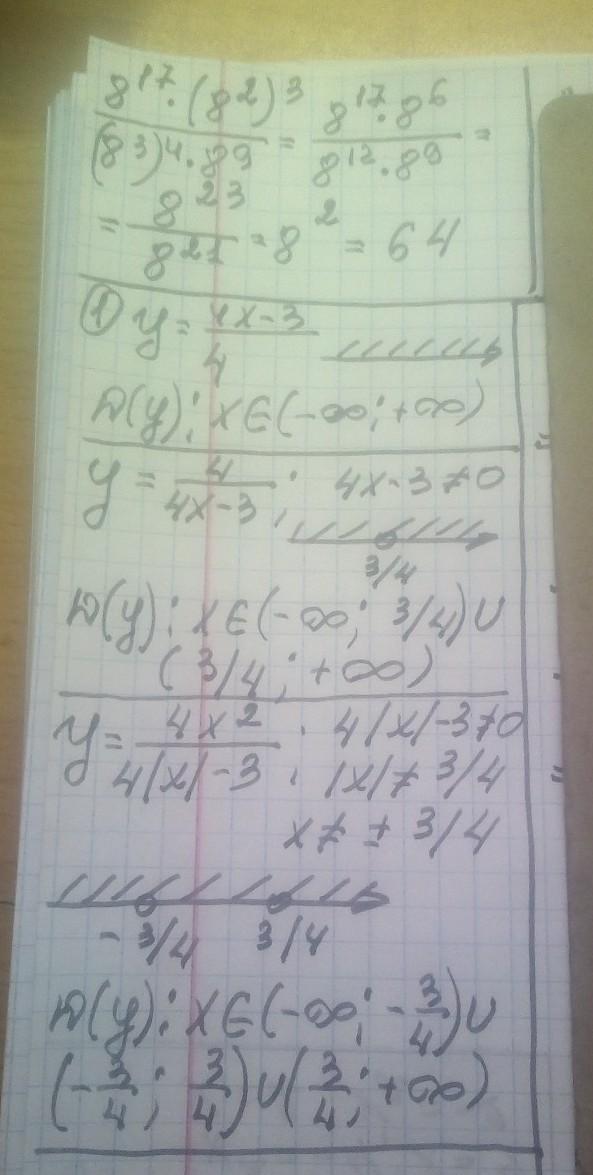 8¹⁷·(8²)³/(8³)⁴·8⁹ = 8¹⁷·8⁶/8¹²·8⁹ =
= 8²³/8²¹ = 8² = 64
① y = 4x-3/4
D(y): x∈(-∞; +∞)
y = 4/4x-3; 4x-3≠0
3/4
D(y): x∈(-∞; 3/4)∪
(3/4; +∞)
y = 4x²/4|x|-3; 4|x|-3≠0
|x|≠3/4
x≠±3/4
-3/4 3/4
D(y): x∈(-∞; -3/4)∪
(-3/4; 3/4)∪(3/4; +∞)